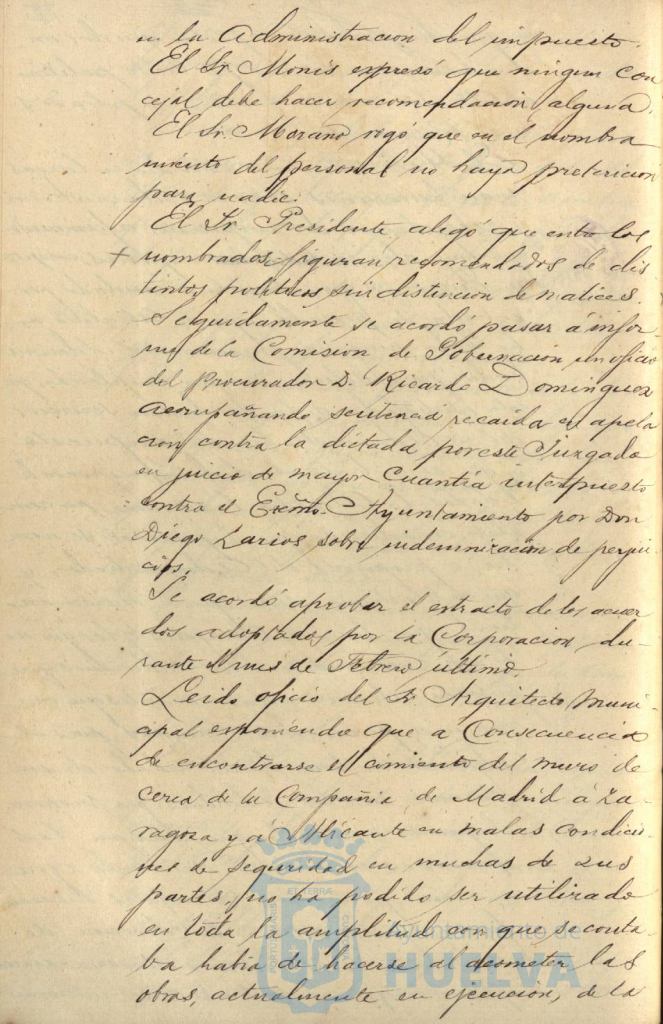 en la Administracion del impuesto.
El Sr. Monis expresó que ningun con
cejal debe hacer recomendación alguna.
El Sr. Morano rogó que en el nombra
miento del personal no haya pretericion
para nadie.
El Sr. Presidente, alegó que entre los
+ nombrados figuran recomendados de dis
tintos politicos sin distincion de matices.
Seguidamente se acordó pasar á infor
me de la Comision de Gobernación un oficio
del Procurador D. Ricardo Dominguez
acompañando sentencia recaida en apela
ción contra la dictada por este Juzgado
en juicio de mayor cuantía interpuesto
contra el Excmo. Ayuntamiento por Don
Diego Larios sobre indemnizacion de perjui
cios.
Se acordó aprobar el extracto de los acuer
dos adoptados por la Corporacion du-
rante el mes de Febrero último.
Leido oficio del Sr. Arquitecto Muni-
cipal exponiendo que a consecuencia
de encontrarse el cimiento del muro de
cerca de la Compañia de Madrid á Za-
ragoza y á Alicante en malas condicio
nes de seguridad en muchas de sus
partes, no ha podido ser utilizado
en toda la amplitud con que se conta-
ba habia de hacerse al acometer las
obras, actualmente en ejecucion, de la
Ayuntamiento de
HUELVA